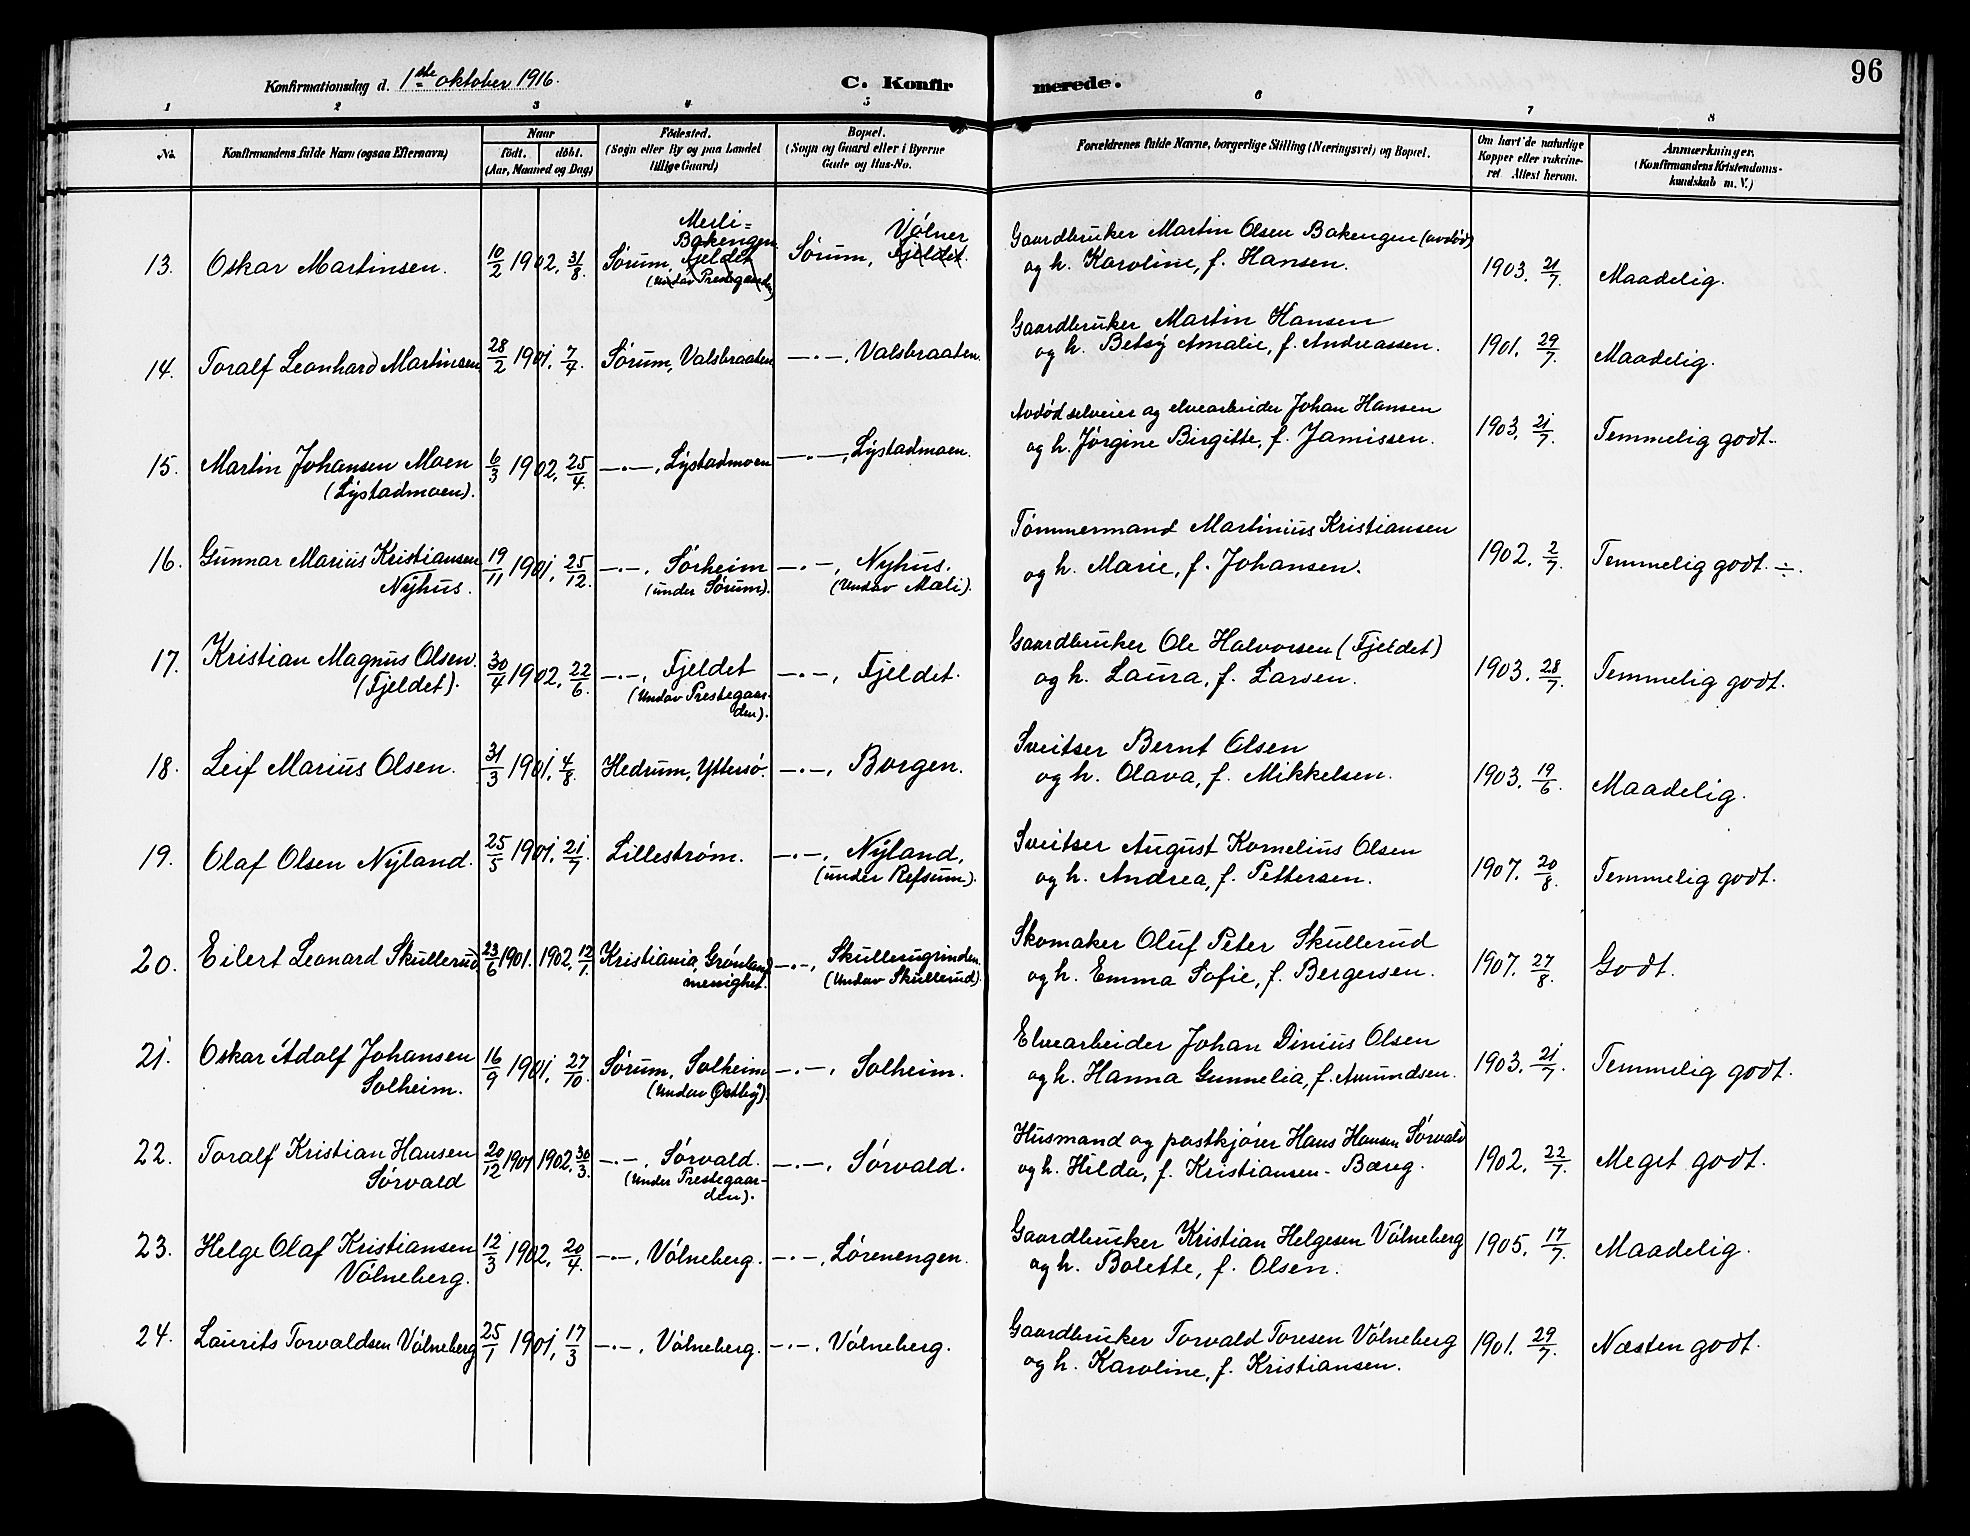 96
Konfirmationsdag d. 1ste oktober 1916.
C. Konfirmerede.
1 2 3 4 5 6 7 8
No.
Konfirmandens fulde Navn (ogsaa Efternavn)
Naar
født. døbt.
(Aar, Maaned og Dag)
Fødested.
(Sogn eller By og paa Landet
tillige Gaard)
Bopæl.
(Sogn og Gaard eller i Byerne
Gade og Hus-No.
Forældrenes fulde Navne, borgerlige Stilling (Næringsvei) og Bopæl.
Om havt de naturlige
Kopper eller vakcine-
ret Attest herom.
Anmærkninger.
(Konfirmandens Kristendoms-
kundskab m. V.)
13. Oskar Martinsen. 10/2 1902. 31/8 Sørum, Fjeldet (Undav Prestegaarden) Merli= Bakengen Sørum, Fjeldet. Vølner
Gaardbruker Martin Olsen Bakengen (avdød)
og h. Karoline, f. Hansen. 1903. 21/7. Maadelig.
14. Toralf Leonhard Martinsen. 28/2 1901. 7/4. Sørum, Valsbraaten —·—, Valsbraaten.
Gaardbruker Martin Hansen
og h. Betsy Amalie, f. Andreassen. 1901. 29/7. Maadelig.
15. Martin Johansen Moen 6/3 1902. 25/4. —·—, Lystadmoen —·—, Lystadmoen.
(Lystadmoen).
Avdød selveier og elvearbeider Johan Hansen
og h. Jørgine Birgitte, f. Jamissen. 1903. 21/7. Temmelig godt.
16. Gunnar Marius Kristiansen 19/11 1901. 25/12. —·—, Sørheim —·—, Nyhus.
Nyhus. (under Sørum). (Undav Mæli).
Tømmermand Martinius Kristiansen
og h. Marie, f. Johansen. 1902. 2/7. Temmelig godt. ÷.
17. Kristian Magnus Olsen 30/4 1902. 22/6. —·—, Fjeldet —·—, Fjeldet.
(Fjeldet). (Undav Prestegaar-
den).
Gaardbruker Ole Halvorsen (Fjeldet)
og h. Laura, f. Larsen. 1903. 28/7. Temmelig godt.
18. Leif Marius Olsen. 31/3 1901. 4/8. Hedrum, Yttersø. —·—, Borgen.
Sveitser Bernt Olsen
og h. Olava, f. Mikkelsen. 1903. 19/6. Maadelig.
19. Olaf Olsen Nyland. 25/5 1901. 21/7. Lillestrøm. —·—, Nyland,
(under Refsum).
Sveitser August Kornelius Olsen
og h. Andrea, f. Pettersen. 1907. 20/8. Temmelig godt.
20. Eilert Leonard Skullerud 23/6 1901. 1902. 12/1. Kristiania, Grønland —·—, Skullerugrinden.
menighet. (Undav Skullerud).
Skomaker Oluf Peter Skullerud
og h. Emma Sofie, f. Bergersen. 1907. 27/8. Godt.
21. Oskar Adolf Johansen 16/9 1901. 27/10. Sørum, Solheim —·—, Solheim.
Solheim. (Undav Østby).
Elvearbeider Johan Dinius Olsen
og h. Hanna Gunnelia, f. Amundsen. 1903. 21/7. Temmelig godt.
22. Toralf Kristian Hansen 20/12 1901 1902. 30/3. —·—, Sørvald. —·—, Sørvald.
Sørvald (under Prestegaar-
den).
Husmand og postkjører Hans Hansen Sørvald
og h. Hilda, f. Kristiansen- Bæreg. 1902. 22/7. Meget godt.
23. Helge Olaf Kristiansen 12/3 1902. 20/4. —·—, Vølneberg. —·—, Lørenengen.
Vølneberg.
Gaardbruker Kristian Helgesen Vølneberg
og h. Bolette, f. Olsen. 1905. 17/7. Maadelig.
24. Laurits Torvaldsen Vølneberg 25/1 1901. 17/3 —·—, Vølneberg. —·—, Vølneberg.
Gaardbruker Torvald Toresen Vølneberg
og h. Karoline, f. Kristiansen. 1901. 29/7. Næsten godt.